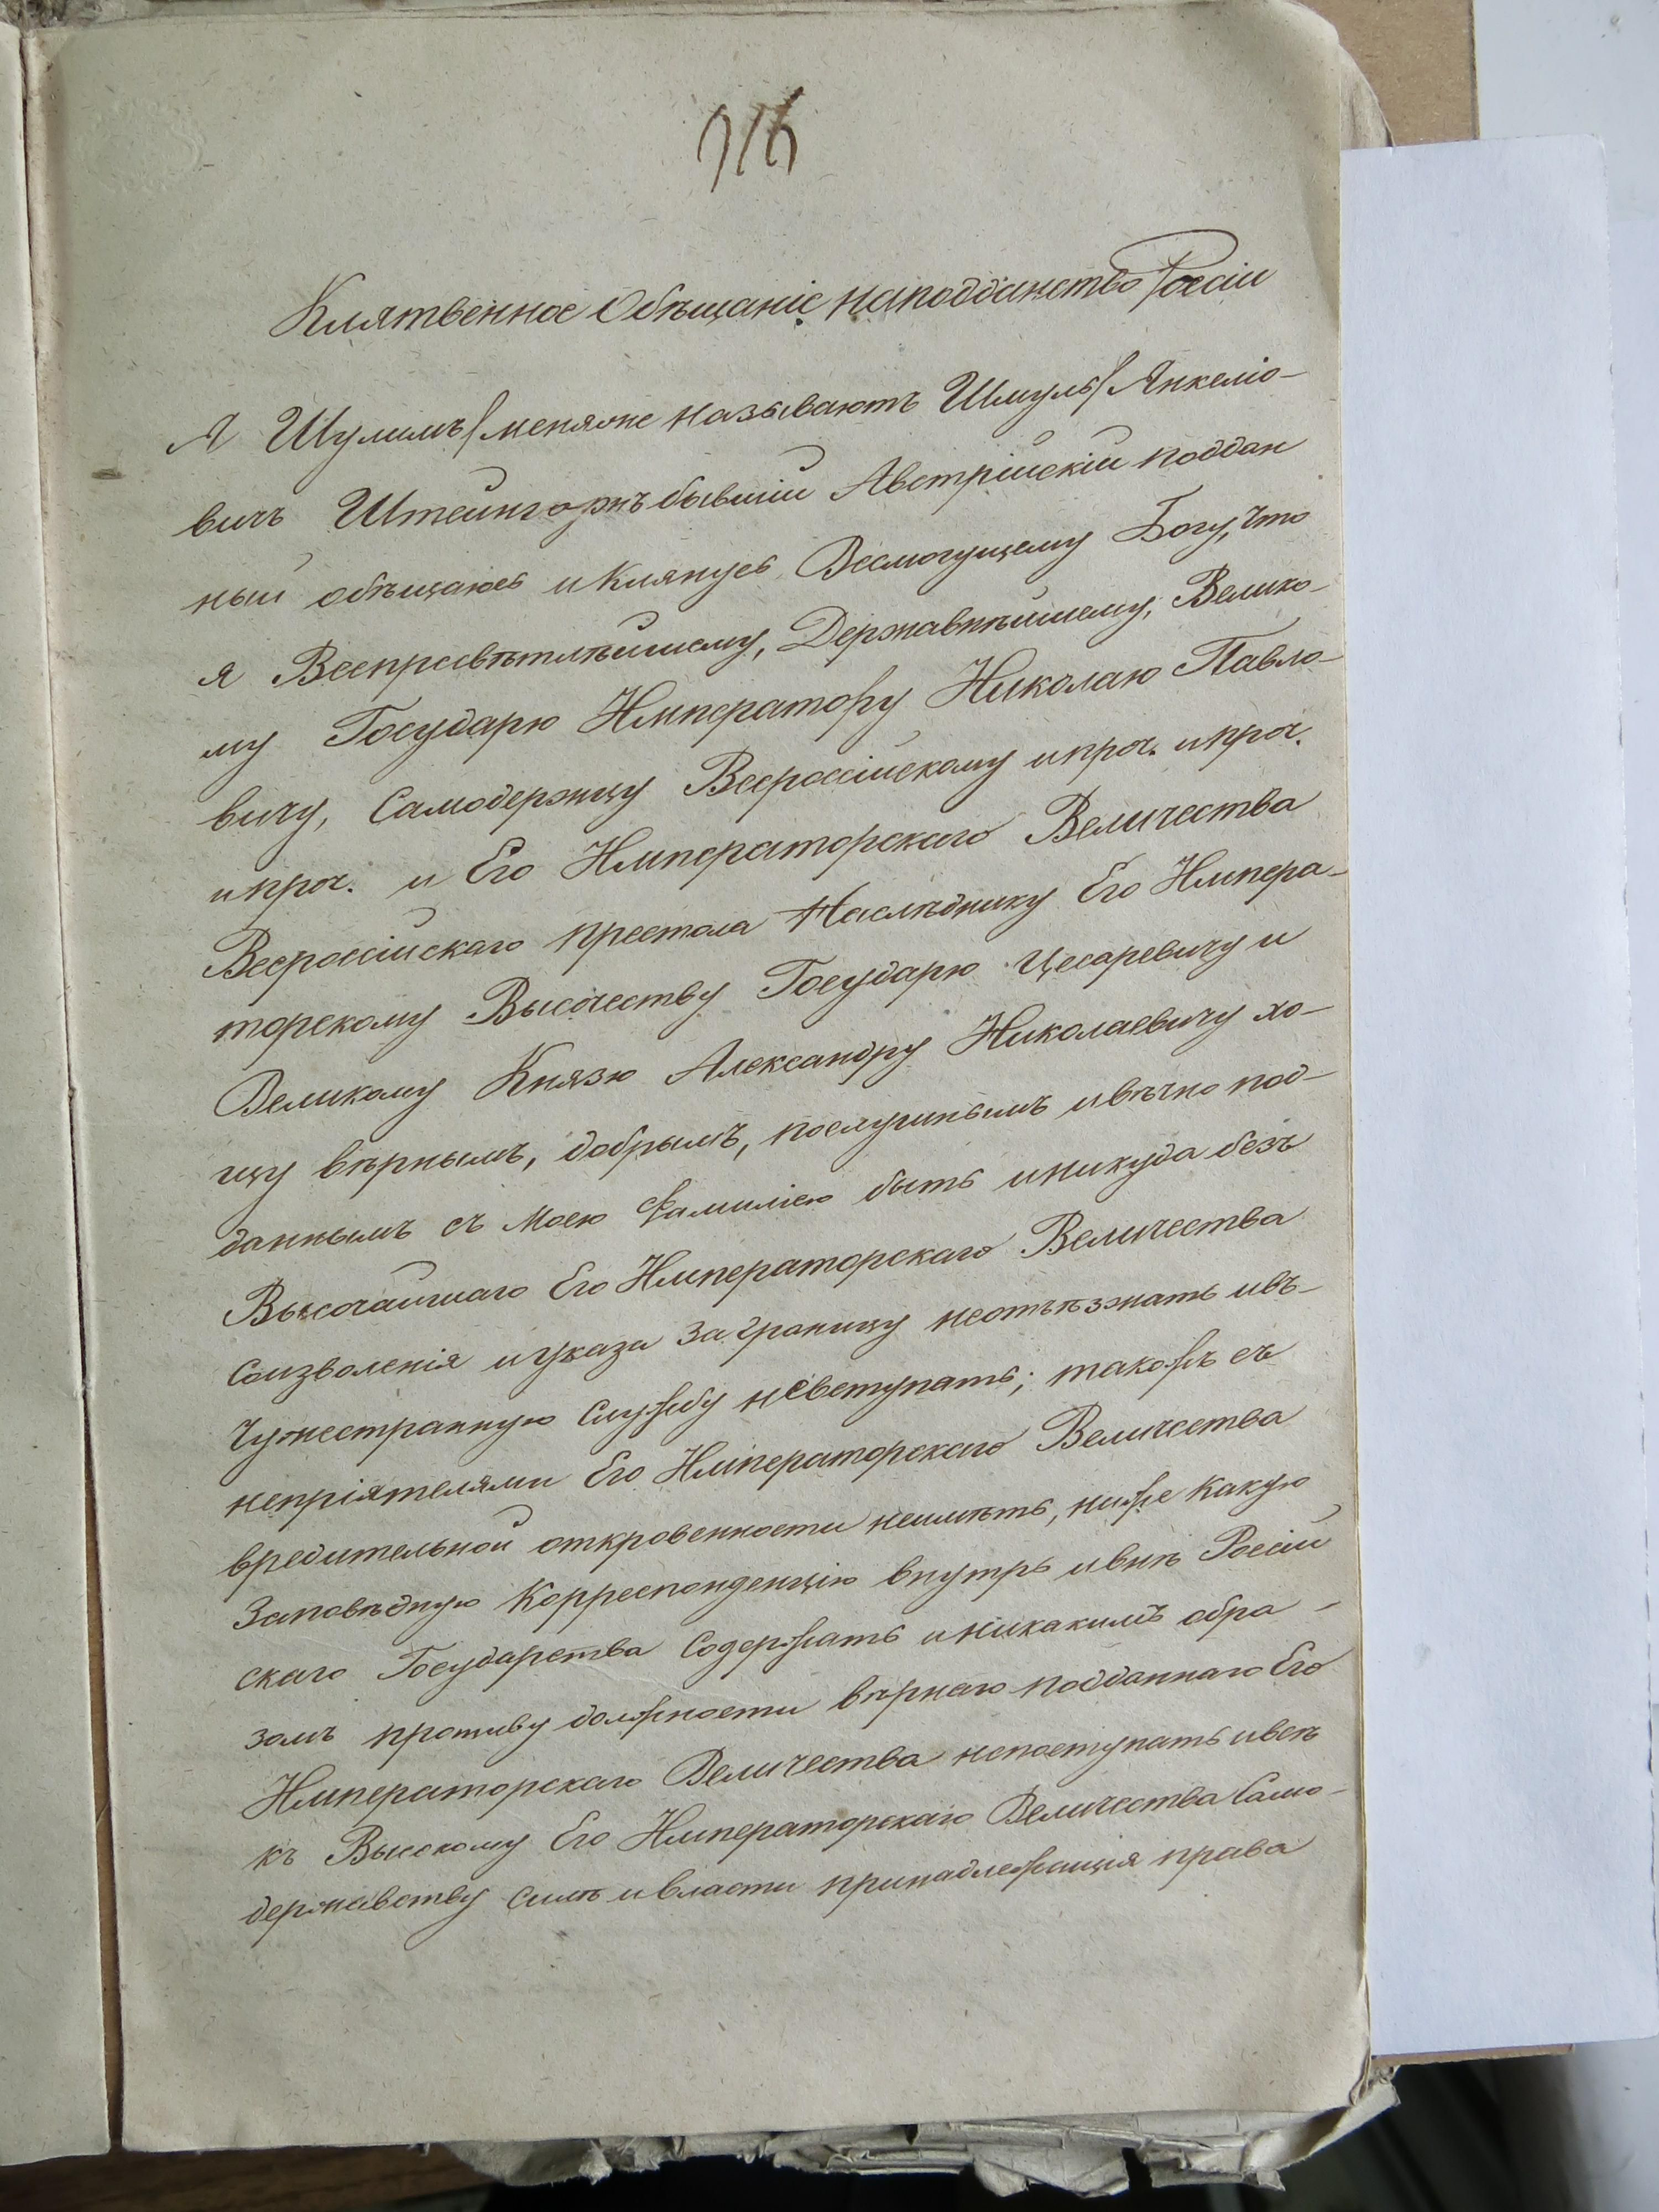 916
Клятвенное Обѣщаніе наподданство Россіи
Я Шулимъ/меняже называютъ Шмуль/Янкеліо-
вичъ Штейнгорнъ бывшій Австрійскій поддан
ный обѣщаюсь и Клянусь Всемогущему Богу, что
я Всепресвѣтлѣйшему, Державнѣйшему, Велико-
му Государю Императору Николаю Павло-
вичу, Самодержцу Всероссійскому ипроч. ипроч.
ипроч. и Его Императорскаго Величества
Всероссійскаго престола Наслѣднику Его Импера-
торскому Высочеству Государю Цесаревичу и
Великому Князю Александру Николаевичу хо-
щу вѣрнымъ, добрымъ, послушнымъ ивѣчно под-
даннымъ съ Моею Фамиліею быть иникуда безъ
Высочайшаго Его Императорскаго Величества
Соизволенія иуказа Заграницу неотъѣзжать ивъ-
Чужестранную Службу невступать; такожъ съ
непріятелями Его Императорскаго Величества
вредительной откровенности неимѣть, ниже какую
Заповѣдную Корреспонденцію внутрь ивнѣ Россій
скаго Государства Содержать иникакимъ обра-
зомъ противу должности вѣрнаго подданнаго Его
Императорскаго Величества непоступать ивсѣ
къ Высокому Его Императорскаго Величества Само-
державству силѣ ивласти принадлежащія права